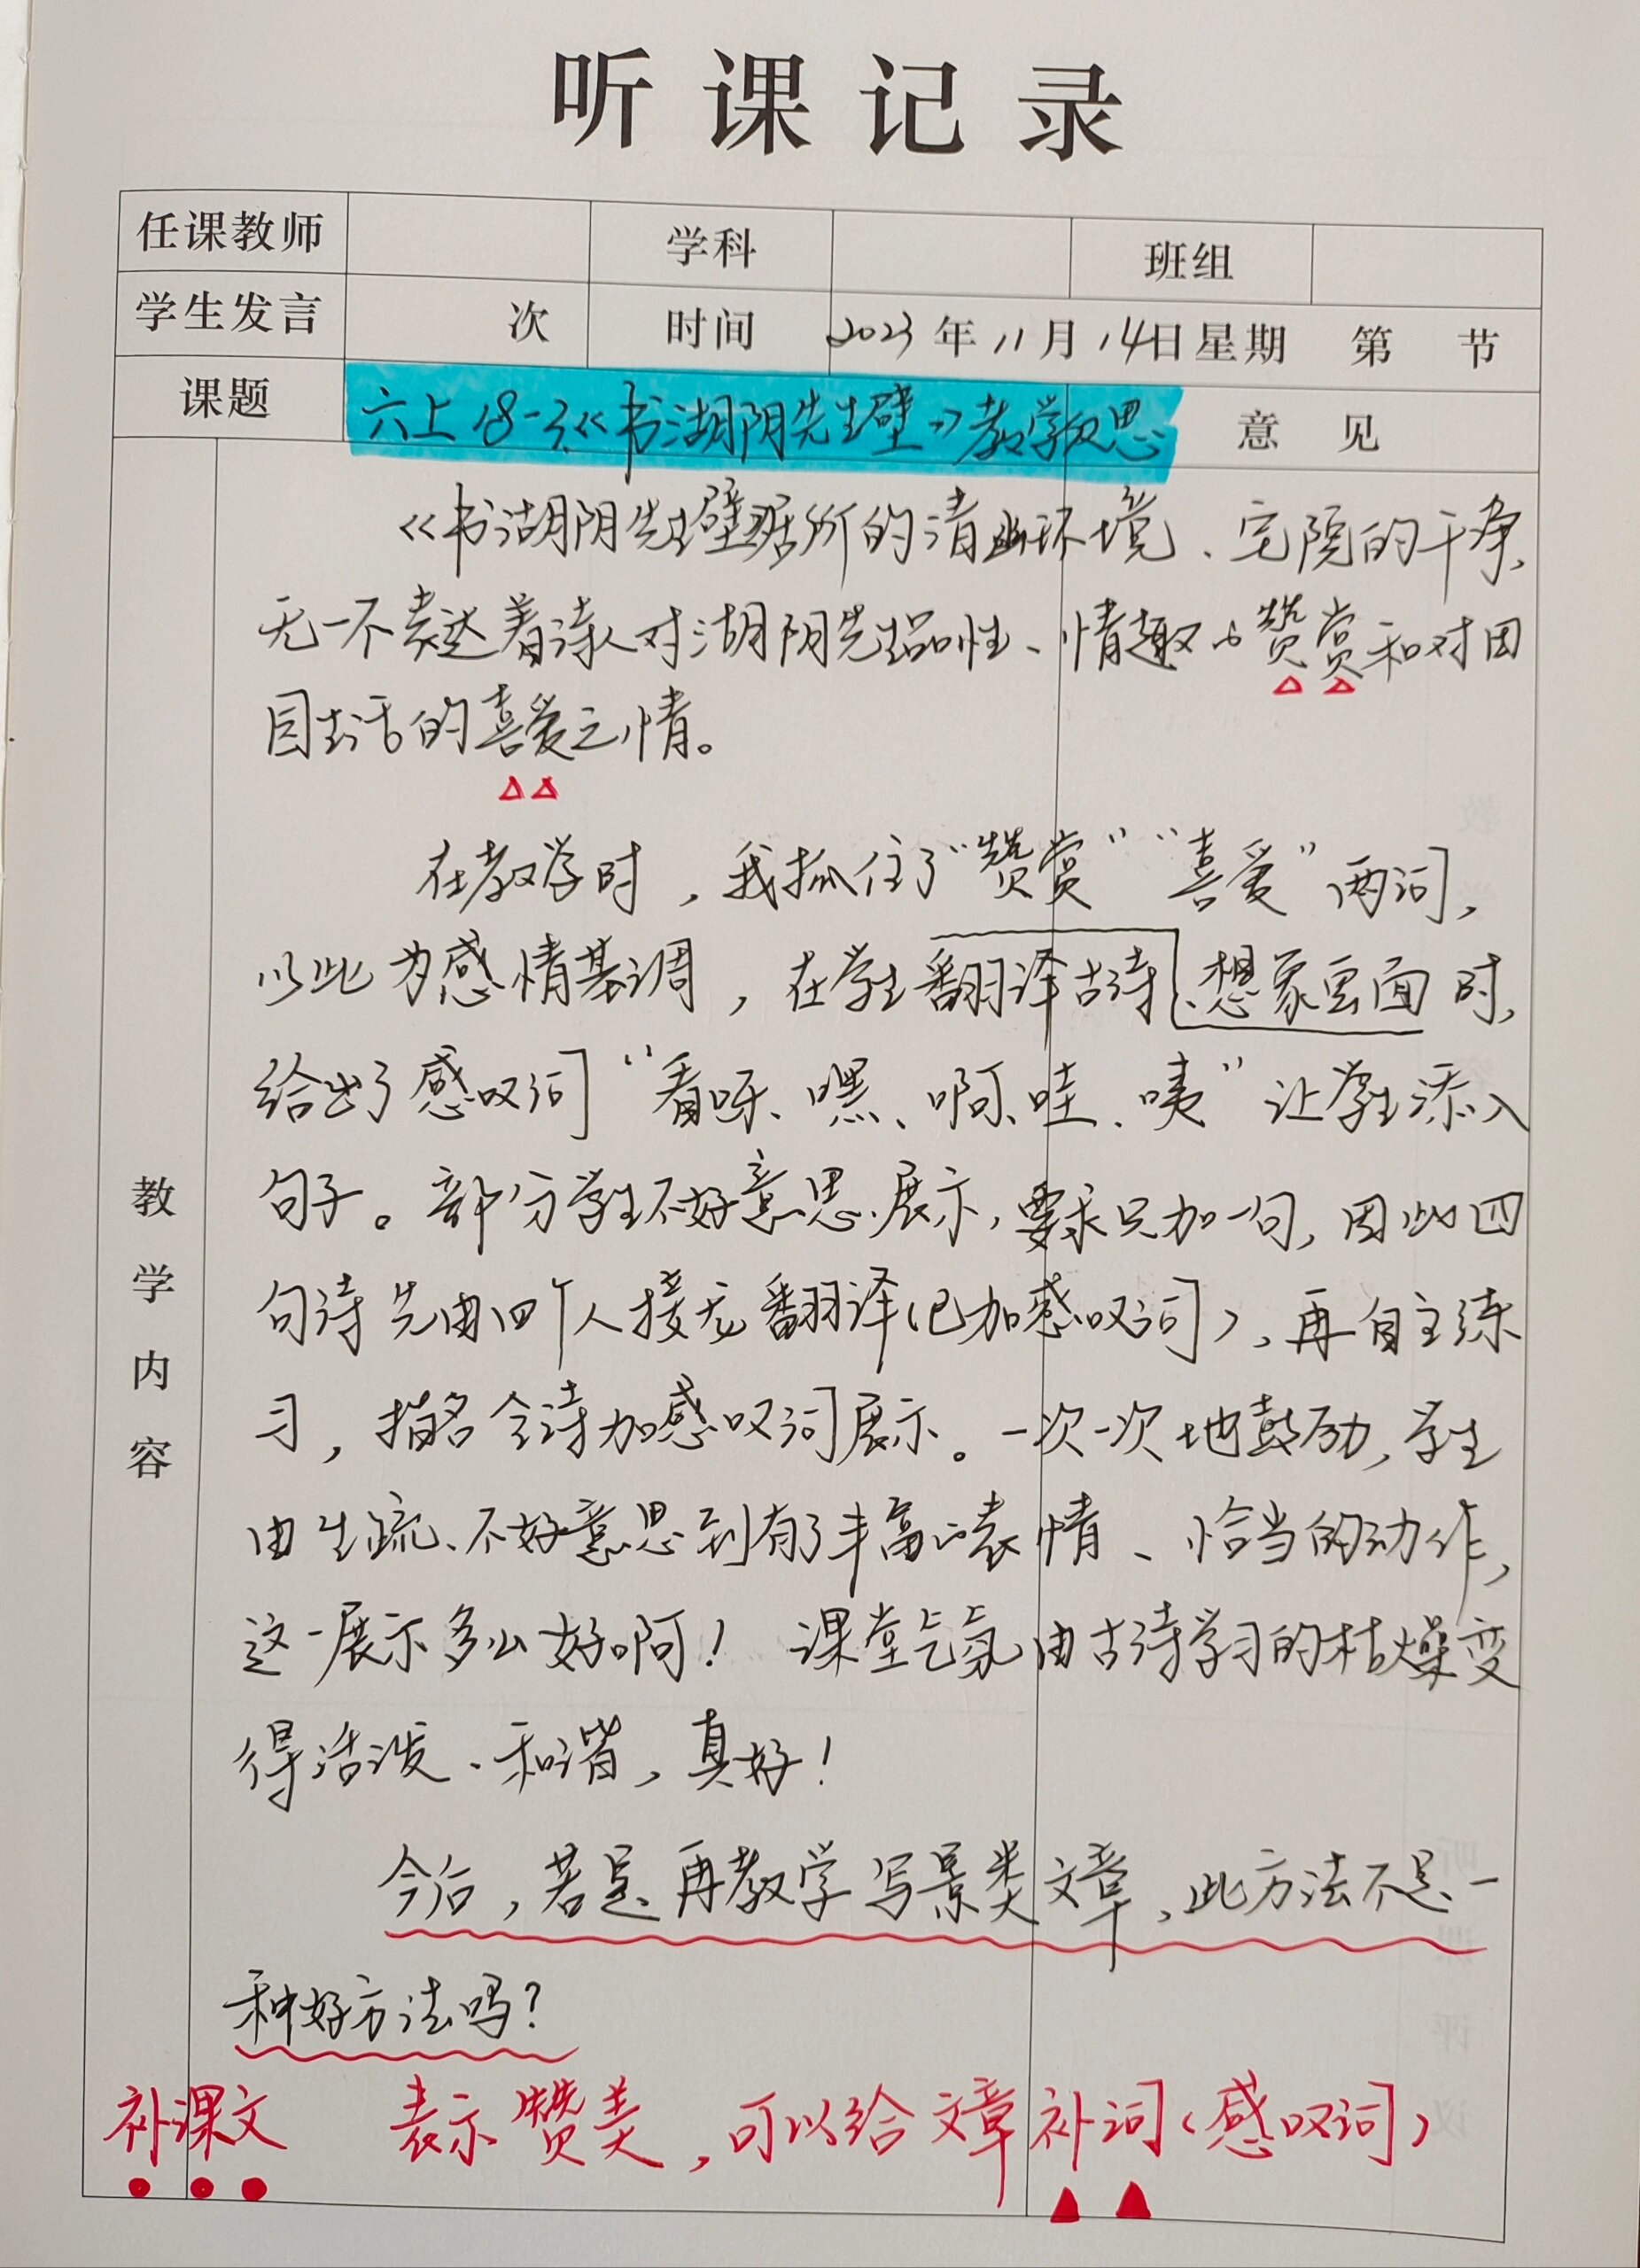 听课记录
任课教师 学科 班组
学生发言 次 时间 2023年11月14日星期 第 节
课题 六上18-3《书湖阴先生壁》教学反思 意见
教学内容
《书湖阴先生壁》居所的清幽环境、宅院的干净,
无一不表达着诗人对湖阴先生品性、情趣的赞赏和对田
园生活的喜爱之情。
在教学时,我抓住了“赞赏”“喜爱”两词,
以此为感情基调,在学生翻译古诗、想象画面时,
给出了感叹词“看呀、嘿、啊、哇、咦”让学生添入
句子。部分学生不好意思展示,要求只加一句,因此四
句诗先由四个人接龙翻译(已加感叹词),再自主练
习,指名全诗加感叹词展示。一次一次地鼓励,学生
由生疏、不好意思到有了丰富的表情、恰当的动作,
这一展示多么好啊!课堂气氛由古诗学习的枯燥变
得活泼、和谐,真好!
今后,若是再教学写景类文章,此方法不是一
种好方法吗?
补课文 表示赞美,可以给文章补词(感叹词)